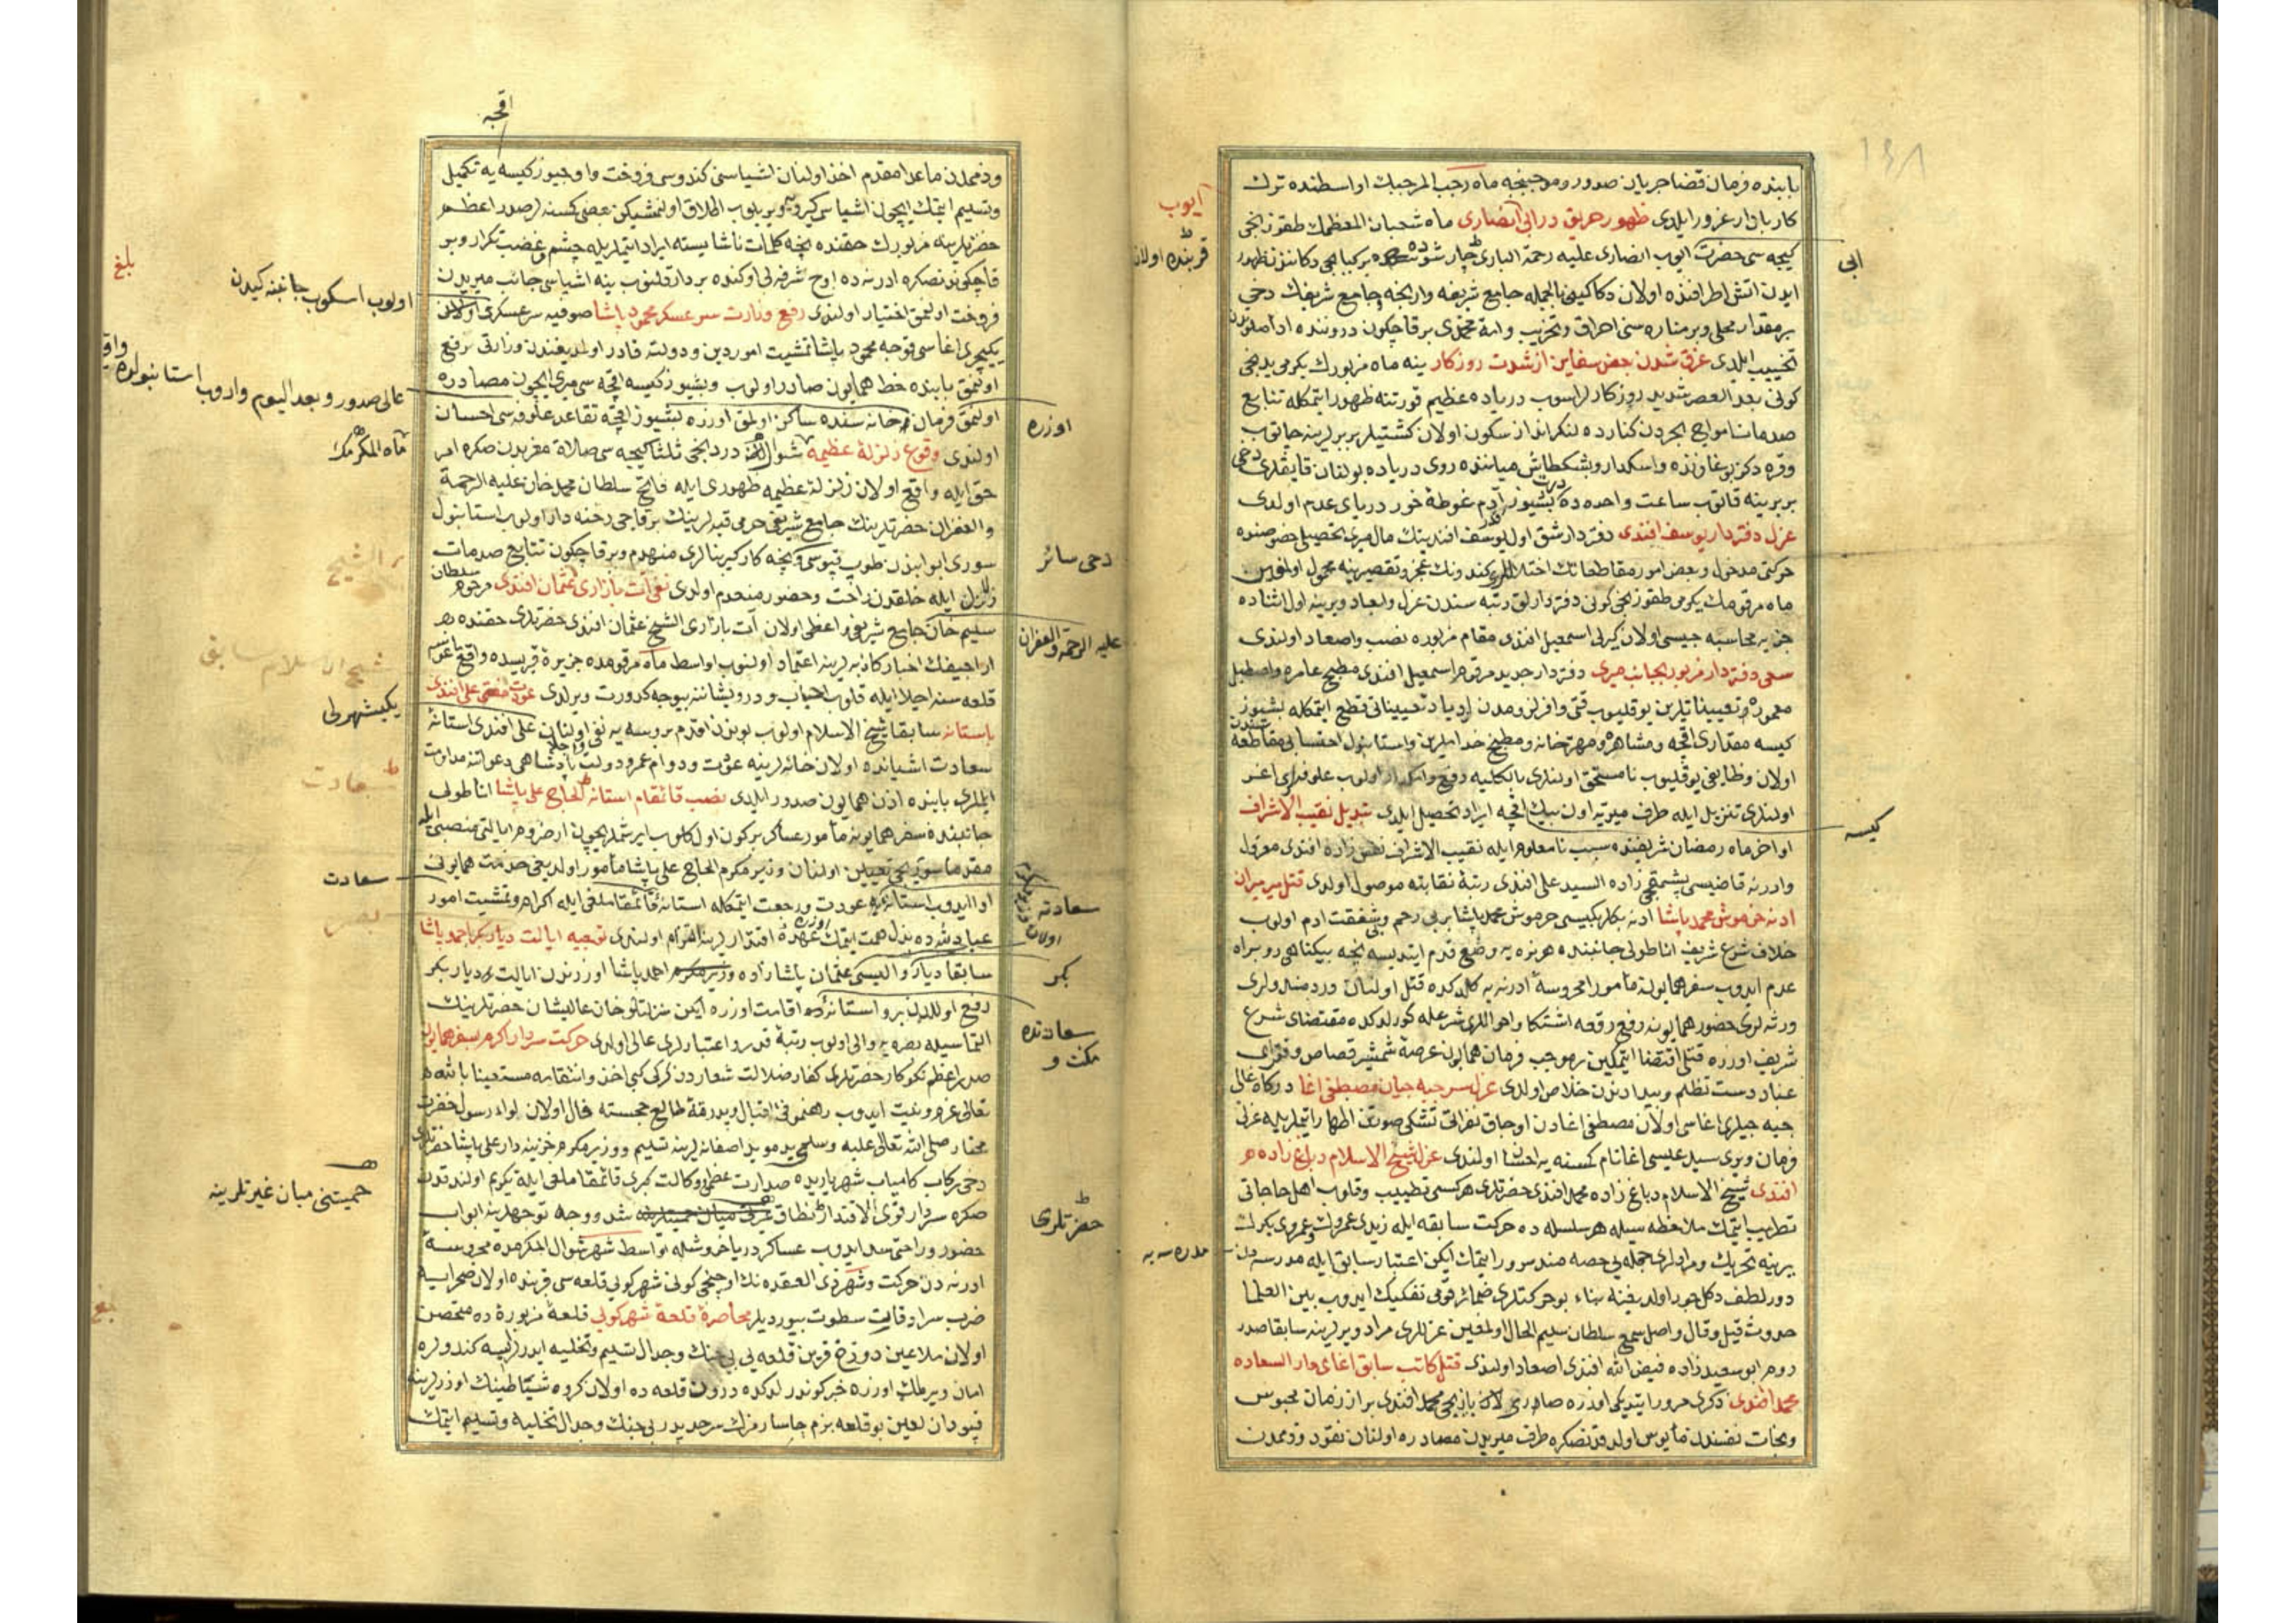 ١٣٨
بابنده فرمان قضا جريان صدور و موجبنجه ماه رجب المرجبك اواسطنده ترك
كار بار غرور ايلدى ظهور حريق در ابى انصارى ماه شعبان المعظمك طقوزنجى
كيجه سى حضرت ايوب انصارى عليه رحمة البارى چارشوسنده بر كبابجى دكانندن ظهور
ايدن اتش اطرافنده اولان دكاكينى بالجمله جامع شريفه وارنجه و جامع شريفك دخى
بر مقدار محلى و بر مناره سنى احراق و تخريب و امة محمدى بر قاچ كون درونده ادا صلوتدن
تخييب ايلدى غرق شدن بعض سفاين از شدت روزكار ينه ماه مزبورك يكرمى يدنجى
كونى بعد العصر شديد روزكارلر اسوب درياده عظيم فورتنه ظهور ايتمكله تتابع
صدمات امواج بحردن كنارده لنكر انداز سكون اولان كشتيلر بربرلرينه چاتوب
و قره دكز بوغازنده و اسكدار و بشكطاش مياننده روى درياده بولنان قايقلر دخى
بربرينه قاتوب ساعت واحده ده درت بشيوز آدم غوطه خور درياى عدم اولدى
عزل دفتردار يوسف افندى دفتردار شق اول يوسف افندينك مال ميرى تحصيلى خصوصنده
حركتى مدخول و بعض امور مقاطعاتك اختلاللرى كندونك عجز و تقصيرينه محمول اولمغين
ماه مرقومك يكرمى طقوزنجى كونى دفتردارلق رتبه سندن عزل و ابعاد و يرينه اول اثناده
جزيه محاسبه جيسى اولان كيرلى اسمعيل افندى مقام مزبوره نصب و اصعاد اولندى
سعى دفتردار مزبور بجانب ميرى دفتردار جديد مرقوم اسمعيل افندى مطبخ عامره و اصطبل
معموره و تعييناتلرين يوقليوب قتى وافر لزومدن ازياد تعييناتى قطع ايتمكله بشيوز
كيسه مقدارى اقچه و مشاهره و مهترخانه و مطبخ خداملرين و استانبول احتسابى مقاطعه سندن
اولان وظايفى يوقليوب نامستحق اولنلرى بالكليه رفع و اولوب علوفه لرى اغر
اولنلرى تنزيل ايله طرف ميريه اون بيك اقچه ايراد تحصيل ايلدى تبديل نقيب الاشراف
اواخر ماه رمضان شريفنده سبب نامعلوم ايله نقيب الاشراف زاده افندى معزول
و ادرنه قاضيسى پشمقجى زاده السيد على افندى رتبة نقابته موصول اولدى قتل ميرميران
ادنه خرموش محمد پاشا ادنه بكلربكيسى خرموش محمد پاشا بر بى رحم و بى شفقت ادم اولوب
خلاف شرع شريف اناطولى جانبنده هر نره يه وضع قدم ايتديسه نجه بيكناهى روبراه
عدم ايدوب سفر همايونه مأمورا محروسه ادرنه يه كلدكده قتل اولنان دردمندلرى
ورثه لرى حضور همايونه رفع رقعه اشتكا و احواللرى شرعله كورلدكده مقتضاى شرع
شريف اوزره قتلى اقتضا ايتمكين بر موجب فرمان همايون عرضة شمشير قصاص و فقراى
عباد دست تظلم و بيدادندن خلاص اولدى عزل سر جبه جيان مصطفى اغا دركاه عالى
جبه جيلرى اغاسى اولان مصطفى اغادن اوجاق نفراتى تشكى صورتن اظهار ايتملريله عزلى
فرمان و يرى سيد عيسى اغا نام كسنه يه احسان اولندى عزل شيخ الاسلام دباغ زاده محمد
افندى شيخ الاسلام دباغ زاده محمد افندى حضرتلرى هر كسى تطييب و قلوب اهل حاجاتى
تطريب ايتمك ملاحظه سيله هر سلسله ده حركت سابقه ايله زيدى عمروك و عمروى بكرك
يرينه تحريك و مرادلرى جمله يى حصه مند سرور ايتمك ايكن اعتبار سابق ايله مدرسه دن
دور لطف دكل جور اولديغينه بناء بو حركتلرى ضمائر قومى تفكيك ايدوب بين العلما
حدوث قيل و قال و اصل سمع سلطان سليم الحال اولمغين عزللرى مراد و يرلرينه سابقا صدر
روم ابو سعيد زاده فيض الله افندى اصعاد اولندى قتل كاتب سابق اغاى دار السعاده
محمد افندى ذكرى مرور ايتديكى اوزره صادرى اولان يازيجى محمد افندى بر از زمان محبوس
و نجات نفسندن مأيوس اولدقدنصكره طرف ميريدن مصادره اولنان نقود و ذممدن
ايوب
قربنده اولان
ابى
كيسه
مدرسه يه
اقچه
و ذممدن ماعدا مقدم اخذ اولنان اشياسنى كندوسى فروخت و اوچيوز كيسه يه تكميل
و تسليم ايتمك ايچون اشياسى كيرويه ويريلوب اطلاق اولنمشيكن بعض كسنه لر صدر اعظم
حضرتلرينه مزبورك حقنده نجه كلمات ناشايسته ايراد ايتملريله خشم و غضب تكرار و بر
قاچ كوندنصكره ادرنه ده اوچ شرفه لى اوكنده بردار قلنوب ينه اشياسى جانب ميريدن
فروخت اولنمق اختيار اولندى رفع وزارت سر عسكر محمود پاشا صوفيه سر عسكرى اولان
يكيچرى اغاسى قوجه محمود پاشا تمشيت امور دين و دولته قادر اولمديغندن وزارتى رفع
اولنمق بابنده خط همايون صادر اولوب و بشيوز كيسه اقچه سى ميرى ايچون مصادره
اولنمق فرمان و خانه سنده ساكن اولمق اوزره بشيوز اقچه تقاعد علوفه سى احسان
اولندى وقوع زلزلة عظيمه شوال دردنجى ثلثا كيجه سى صلاة مغربدن صكره امر
حق ايله واقع اولان زلزلة عظيمه ظهورى ايله فاتح سلطان محمد خان عليه الرحمة
و الغفران حضرتلرينك جامع شريفى حرمى قبه لرينك بر قاچى رخنه دار اولوب استانبول
سورى ابوابندن طوپ قپوسى و نجه كاركير بنالرى منهدم و بر قاچ كون تتابع صدمات
زلازل ايله خلقدن راحت و حضور منعدم اولدى نفى آت بازارى عثمان افندى مرحوم سلطان
سليم خان جامع شريفى واعظى اولان آت بازارى الشيخ عثمان افندى حضرتلرى حقنده
اراجيفك اخبار كاذبه لرينه اعتماد اولنوب اواسط ماه مرقومده جزيرة قبريسده واقع ماغوسه
قلعه سنه اجلا ايله قلوب احباب و درويشاننه بيوجه كدورت ويرلدى عودت مفتى على افندى
باستانه سابقا شيخ الاسلام اولوب بوندن اقدم بروسه يه نفى اولنان على افندى استانة
سعادت اشيانده اولان خانه لرينه عودت و دوام عمر و دولت پادشاهى دعواتنه مداومت
ايلملرى بابنده اذن همايون صدور ايلدى نصب قائمقام استانه الحاج على پاشا اناطولى
جانبنده سفر همايونه مأمور عساكر بر كون اول كلوب ايرشمك ايچون ارضروم ايالتى منصبى ايله
مقدما سوريجى تعيين اولنان وزير مكرم الحاج على پاشا مأمور اولديغى خدمت همايونى
ادا ايدوب استانه يه عودت و رجعت ايتمكله استانه قائمقاملغى ايله اكرام و تمشيت امور
عباد الله ده بذل همت ايتمك عهدة اقتدارلرينه التزام اولندى توجيه ايالت ديار بكر احمد پاشا
سابقا ديار واليسى عثمان پاشا زاده وزير مكرم احمد پاشا اوزرندن ايالت ديار بكر
رفع اوللدن برو استانه ده اقامت اوزره ايكن منزلتلو خان عاليشان حضرتلرينك
التماسيله بصره يه والى اولوب رتبة قدر و اعتبارلرى عالى اولدى حركت سردار اكرم سفر همايون
صدر اعظم نكوكار حضرتلرى كفار ضلالت شعاردن كركى كبى اخذ و انتقامه مستعينا بالله
تعالى عزم و نيت ايدوب رهنمونى اقبال و بدرقة طالع خجسته فال اولان لواء رسول حضرت
مختار صلى الله تعالى عليه و سلمى يد مويد اصفانه لرينه تسليم و وزير مكرم خزينه دار على پاشا حضرتلرى
دخى ركاب كامياب شهرياريده صدارت عظمى و وكالت كبرى قائمقاملغى ايله تكريم اولندقدن
صكره سردار قوى الاقتدار نطاق شد و وجه توجهلرينه ابواب
حضور و راحتى سد ايدوب عساكر دريا خروشله اواسط شهر شوال المكرمده محروسة
ادرنه دن حركت و شهر ذى القعده نك اوچنجى كونى شهركويى قلعه سى قربنده اولان صحرايه
ضرب سرادقات سطوت بيورديلر محاصرة قلعة شهركويى قلعة مزبورة ده متحصن
اولان ملاعين دوزخ قرين قلعه يى بى جنك و جدال تسليم و تخليه ايدرلر ايسه كندولره
امان ويرلمك اوزره خبر كوندرلدكده درون قلعه ده اولان كروه شياطينك اوزرلرينه
قپودان لعين بو قلعه بزم چاسارمزك سرحديدر بى جنك و جدال تخليه و تسليم ايتمك
بلغ
اولوب اسكوب جانبنه كيدن
عالى صدور و بعد اليوم واروب استانبولده
ماه المكرمك
اوزره
دخى سائر
عليه الرحمة و الغفران
الشيخ
شيخ الاسلام سابق
يكيشهرلى
سعادت
سعادت
سعادته
اولان
بكر
سعادتده
مكث و
حميتنى ميان غيرتلرينه
حضرتلرى